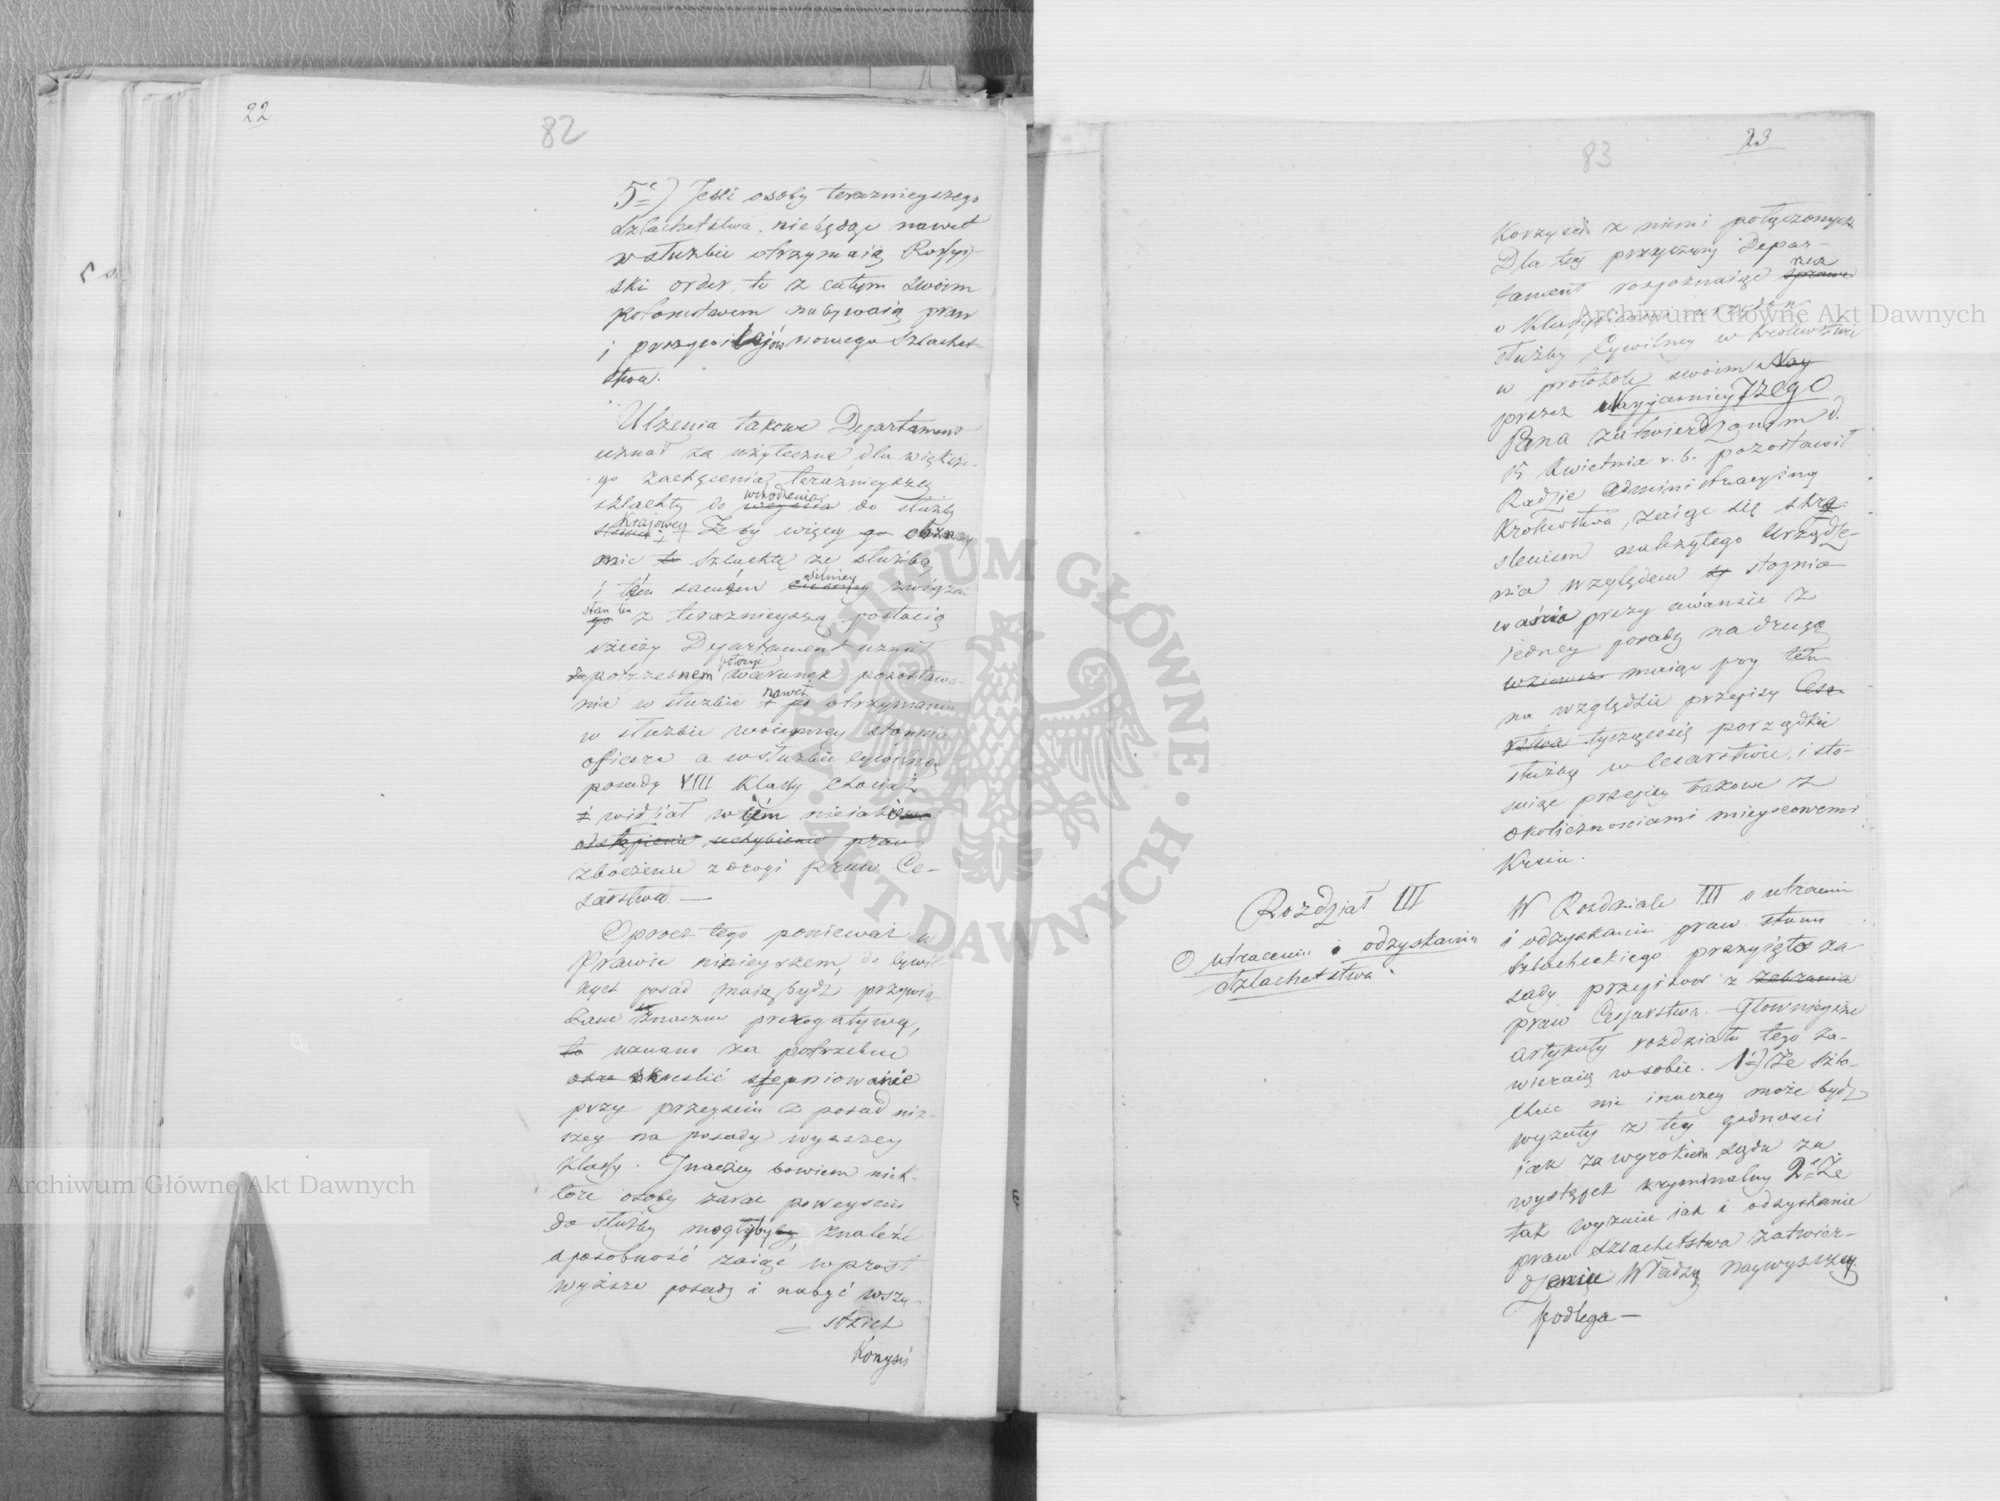 22
82
5e) Jeśli osoby teraznieyszego
Szlachetstwa, niebędąc nawet
w służbie otrzymaią Rossyj-
ski order, to z całym swoim
potomstwem nabywaią praw
i przywilejów nowego Szlachet-
stwa.
Ulżenia takowe Departament
uznał za użyteczne dla większe-
go zachęcenia teraźnieyszey
szlachty do wchodzenia do służby
Krajowey Żeby więcey obznay
mić Szlachtę ze służbą
i tém samém silniey związać
stan ten z teraznieyszą postacią
rzeczy Departament uznał
potrzebnem położyć warunek pozostawa-
nia w służbie nawet po otrzymaniu
w służbie woienney stopnia
oficera a w służbie cywilney
posady VIII Klassy chociaż
i widział w tém nieiakie
odstąpienie uchybienie praw
zboczenie z drogi praw Ce-
sarstwa. —
Oprocz tego ponieważ w
Prawie ninieyszem, do cywil-
nych posad maią bydz przywią-
zane znaczne prerogatywy,
to uznano za potrzebne
określić stopniowanie
przy przeyściu z posad niż-
szey na posady wyższey
Klassy. Inaczey bowiem niek-
tóre osoby zaraz po weyściu
do służby mogłyby znaleźć
sposobność zaiąć wprost
wyższe posady i nabyć wszy-
stkich
Korzyści
83
23
Korzyści z niemi połączonych.
Dla tey przyczyny Depar-
tament rozpoznaiąc rzecz
o Klassyfikacyi urzędów
służby Cywilney w Królestwie
w protokole swoim Nay
przez Nayjaśnieyszego
Pana zatwierdzonym d.
15 Kwietnia r. b. pozostawił
Radzie Administracyiney
Królestwa, zaiąć się skre-
śleniem należytego Urządze-
nia względem stopnio-
wania przy awansie z
iedney posady na drugą
maiąc przy tém
na względzie przepisy
tyczącesię porządku
służby w Cesarstwie, i sto-
suiąc przepisy takowe z
okolicznościami mieyscowemi
Kraiu.
Rozdział III
O utraceniu i odzyskaniu
Szlachetstwa.
W Rozdziale III o utraceniu
i odzyskaniu praw stanu
Szlacheckiego przyięto za-
sady przepisów z zebrania
praw Cesarstwa. Głownieysze
artykuły rozdziału tego za-
wieraią w sobie. 1e) Że szla-
chcic nie inaczey może bydz
wyzuty z tey godności
jak za wyrokiem sądu za
występek kryminalny 2e Że
tak wyzucie jak i odzyskanie
praw szlachetstwa zatwier-
dzeniu Władzy naywyższey
podlega —
Archiwum Główne Akt Dawnych
Archiwum Główne Akt Dawnych
ARCHIWUM GŁÓWNE · AKT DAWNYCH ·